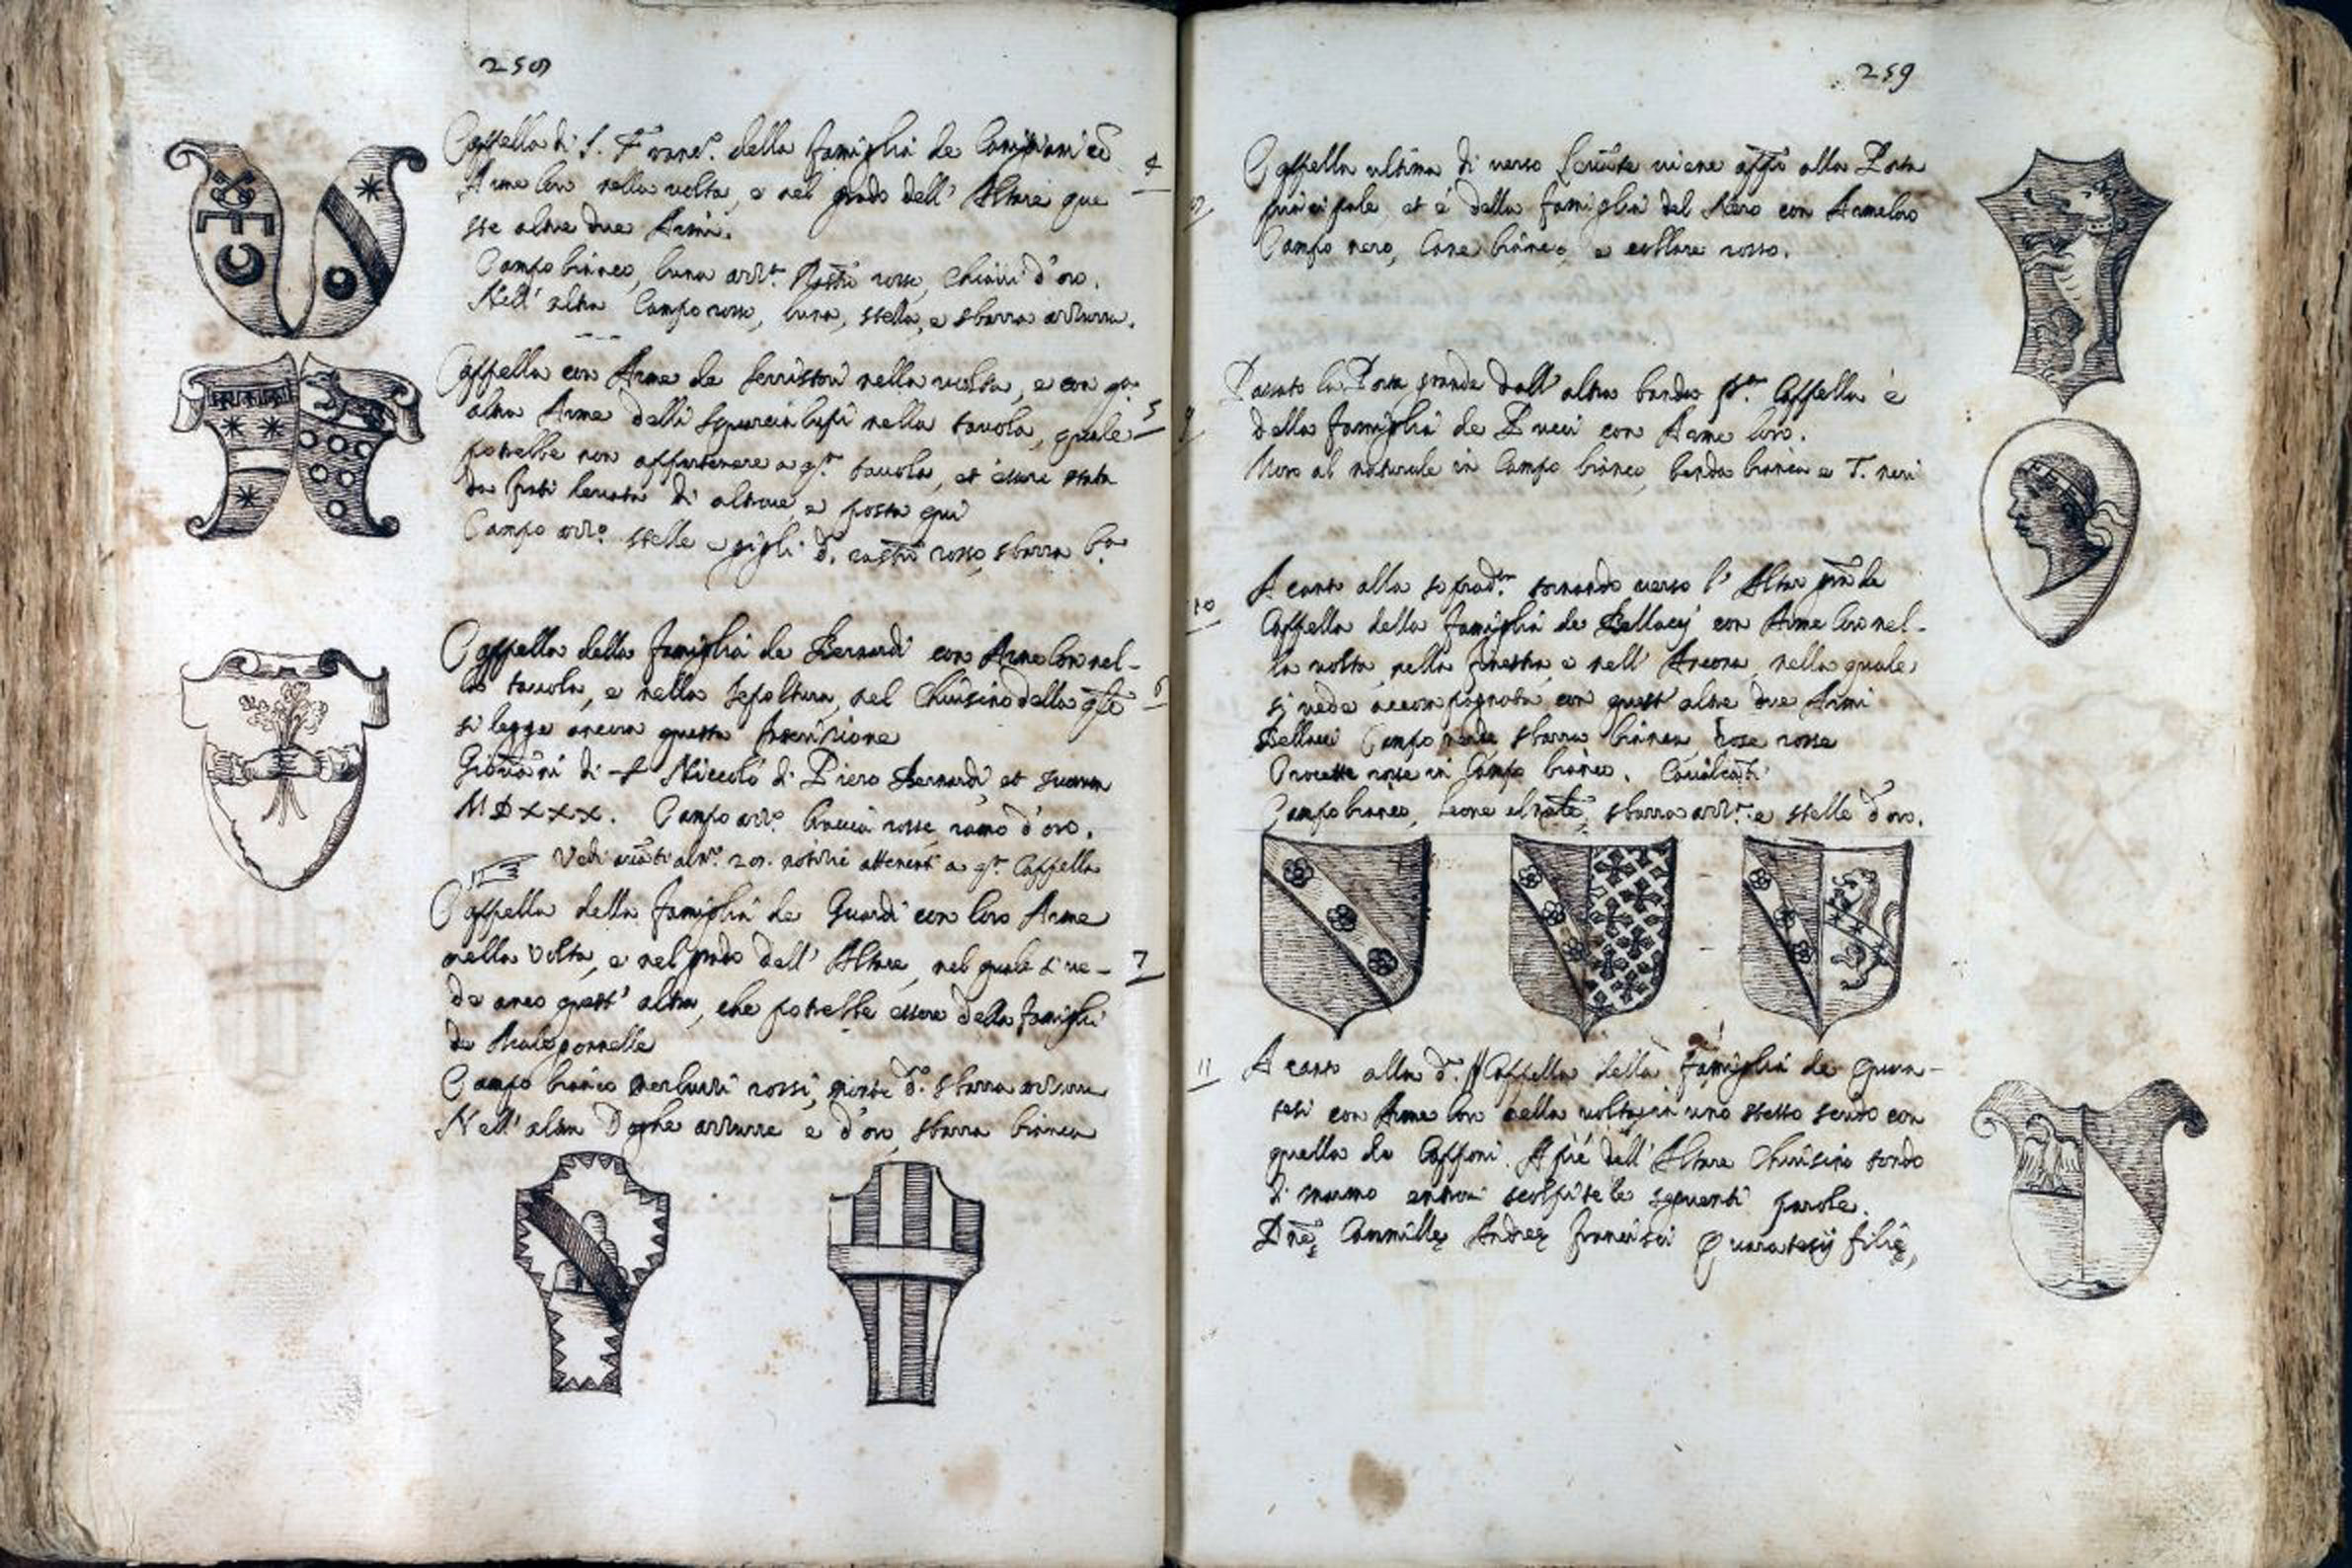 258
Cappella di S. Franc.º della famiglia de
Arme loro nella volta, e nel grado dell' Altare que
ste altre due Armi.
Campo bianco, luna azz.ª Rastri rossi, Chiavi d'oro.
Nell' altra Campo rosso, luna, stella, e sbarra azzurra.
4
Cappella con Arme de Serristori nella volta, e con q.ª
altra Arme delli Squarcialupi nella tavola, quale
potrebbe non appartenere a q.ª tavola, et essere stata
da frati levata di altrove, e posta qui
Campo azz.º stelle e gigli d. rastri rosso, sbarra b.ª
5
Cappella della famiglia de Bernardi con Arme loro nel-
la tavola, e nella sepoltura, nel Chiusino della qle
si legge ancora questa Inscrizione
Giovãni di S Niccolò di Piero Bernardi, et suorum
MDXXX. Campo azz.º braccia rosse, ramo d'oro.
6
Vedi alnº. 20. notizie attenenti a q.ª Cappella
Cappella della famiglia de Guardi con loro Arme
nella Volta, e nel grado dell' Altare, nel quale si ve-
de anco quest' altra, che potrebbe essere della famiglia
de Malegonnelle
Campo bianco rossi, monte d.º sbarra azzurra
Nell' altra Doghe azzurre e d'oro, sbarra bianca
7
259
Cappella ultima di verso viene app.º alla Porta
principale, et è della famiglia del Nero con Arme loro
Campo nero, Cane bianco, e collare rosso.
Passato la Porta grande dall' altra banda p.ª Cappella è
della famiglia de Pucci con Arme loro.
Moro al naturale in Campo bianco, benda bianca e T. neri
9
A canto alla soprad.ª tornando verso l' Altar grãde
Cappella della famiglia de Bellacci con Arme loro nel-
la volta, nella finestra, e nell' Ancona, nella quale
si vede accompagnata con quest' altre due Armi
Bellacci Campo verde, sbarra bianca, rose rosse
Crocette rosse in Campo bianco. Cavalcãti
Campo bianco, Leone al, sbarra azz.ª e stelle d'oro.
10
A canto alla d.ª Cappella della famiglia de Quara-
tesi con Arme loro nella volta, in uno stesso scudo con
quella de Capponi. A piè dell' Altare Chiusino tondo
di marmo entrovi scolpite le seguenti parole.
Dñę Cammillę Andreę Francisci Quaratesij filię,
11